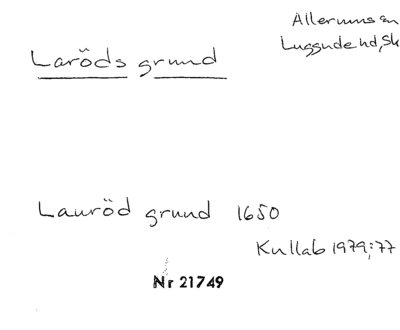 Allerums sn
Luggude hd, Sk
Laröds grund
Lauröd grund 1650
Kullab 1979; 77
Nr 21749